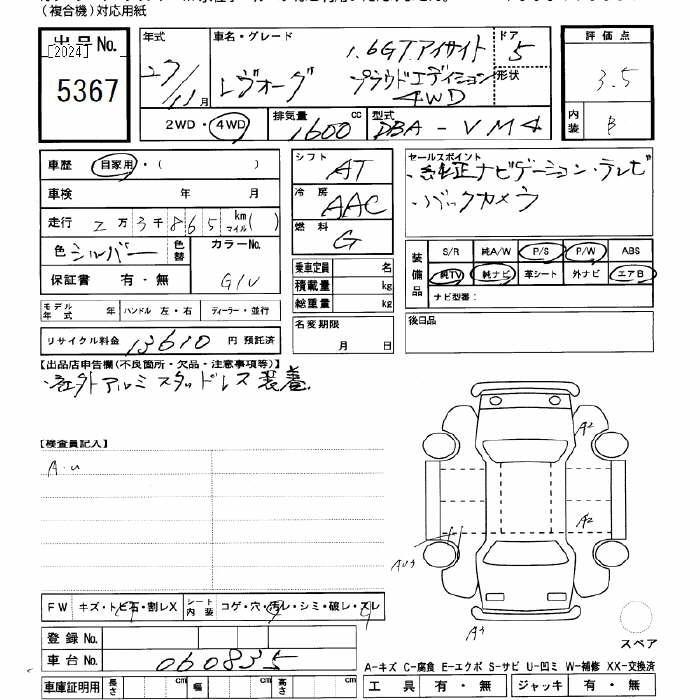 (複合機)対応用紙
出品No. [2024] 5367
年式 27/11月
車名・グレード レヴォーグ 1.6GTアイサイト プラウドエディション 4WD
ドア 5 形状
評価点 3.5
内装 B
2WD・4WD 排気量 1600cc 型式 DBA-VM4
車歴 自家用・( )
車検 年 月
走行 2万3千865 km マイル( )
色 シルバー 色替 カラーNo. G1U
保証書 有・無
モデル年式 年 ハンドル 左・右 ディーラー・並行
リサイクル料金 13610 円 預託済
シフト AT
冷房 AAC
燃料 G
乗車定員 名
積載量 kg
総重量 kg
名変期限 月 日
セールスポイント
・純正ナビゲーション・テレビ
・バックカメラ
装備品 S/R 純A/W P/S P/W ABS
純TV 純ナビ 革シート 外ナビ エアB
ナビ型番:
後日品
【出品店申告欄(不良箇所・欠品・注意事項等)】
・社外アルミスタッドレス装着
【検査員記入】
A.U
A2
A2
A
FW キズ・トビ石・割レX シート内装 コゲ・穴・汚レ・シミ・破レ・スレ
登録No.
車台No. 060835
車庫証明用 長さ cm 幅 cm 高さ cm
スペア
A-キズ C-腐食 E-エクボ S-サビ U-凹ミ W-補修 XX-交換済
工具 有・無 ジャッキ 有・無